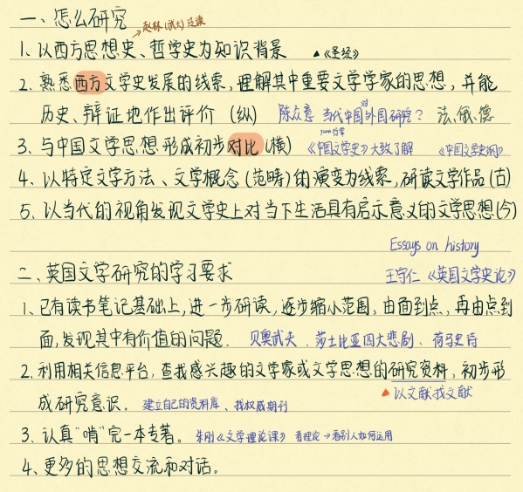 一、怎么研究
赵林（武大）
1. 以西方思想史、哲学史为知识背景 ▲《圣经》
2. 熟悉西方文学史发展的线索，理解其中重要文学学家的思想，并能
历史、辩证地作出评价（纵） 陈众意 当代中国外国研究？ 法、俄、德
3. 与中国文学思想形成初步对比（横） 《中国文学史》大致了解
4. 以特定文学方法、文学概念（范畴）的演变为线索，研读文学作品（古）
5. 以当代的视角发现文学史上对当下生活具有启示意义的文学思想（今）
Essays on history
二、英国文学研究的学习要求 王守仁《英国文学史论》
1. 已有读书笔记基础上，进一步研读，逐步缩小范围，由面到点，再由点到
面，发现其中有价值的问题． 贝奥武夫、莎士比亚四大悲剧、荷马史诗
2. 利用相关信息平台，查找感兴趣的文学家或文学思想的研究资料，初步形
成研究意识． 建立自己的资料库、找权威期刊 ▲以文献找文献
3. 认真“啃”完一本专著。 朱刚《文学理论课》 看理论→看别人如何运用
4. 更多的思想交流和对话。